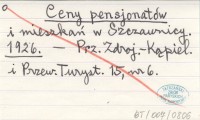 Ceny pensjonatów
i mieszkań w Szczawnicy.
1926. — Prz. Zdroj.-Kąpiel.
i Przew. Turyst. 15, nr 6.